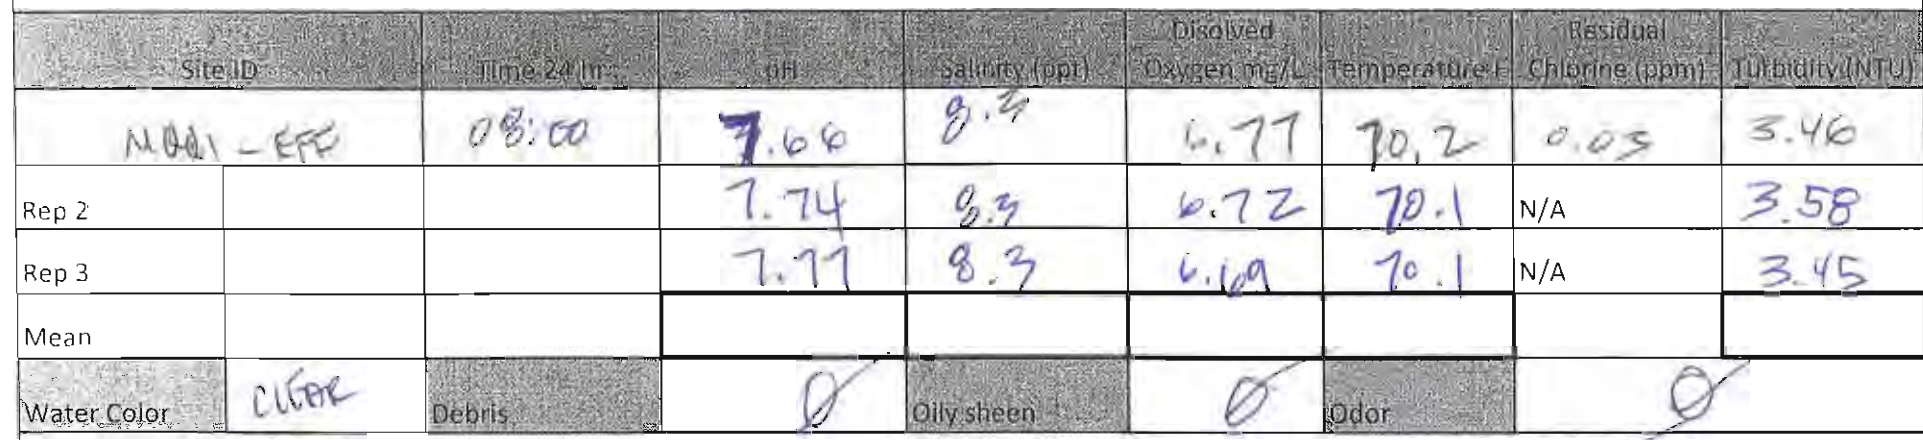 Site ID Time 24 hr pH Salinity (ppt) Disolved Oxygen mg/L Temperature F Residual Chlorine (ppm) Turbidity (NTU)
- EFF 08:00 7.66 8.3 6.77 70.2 0.03 3.46
Rep 2 7.74 8.3 6.72 70.1 N/A 3.58
Rep 3 7.77 8.3 6.69 70.1 N/A 3.45
Mean
Water Color CLEAR Debris Ø Oily sheen Ø Odor Ø